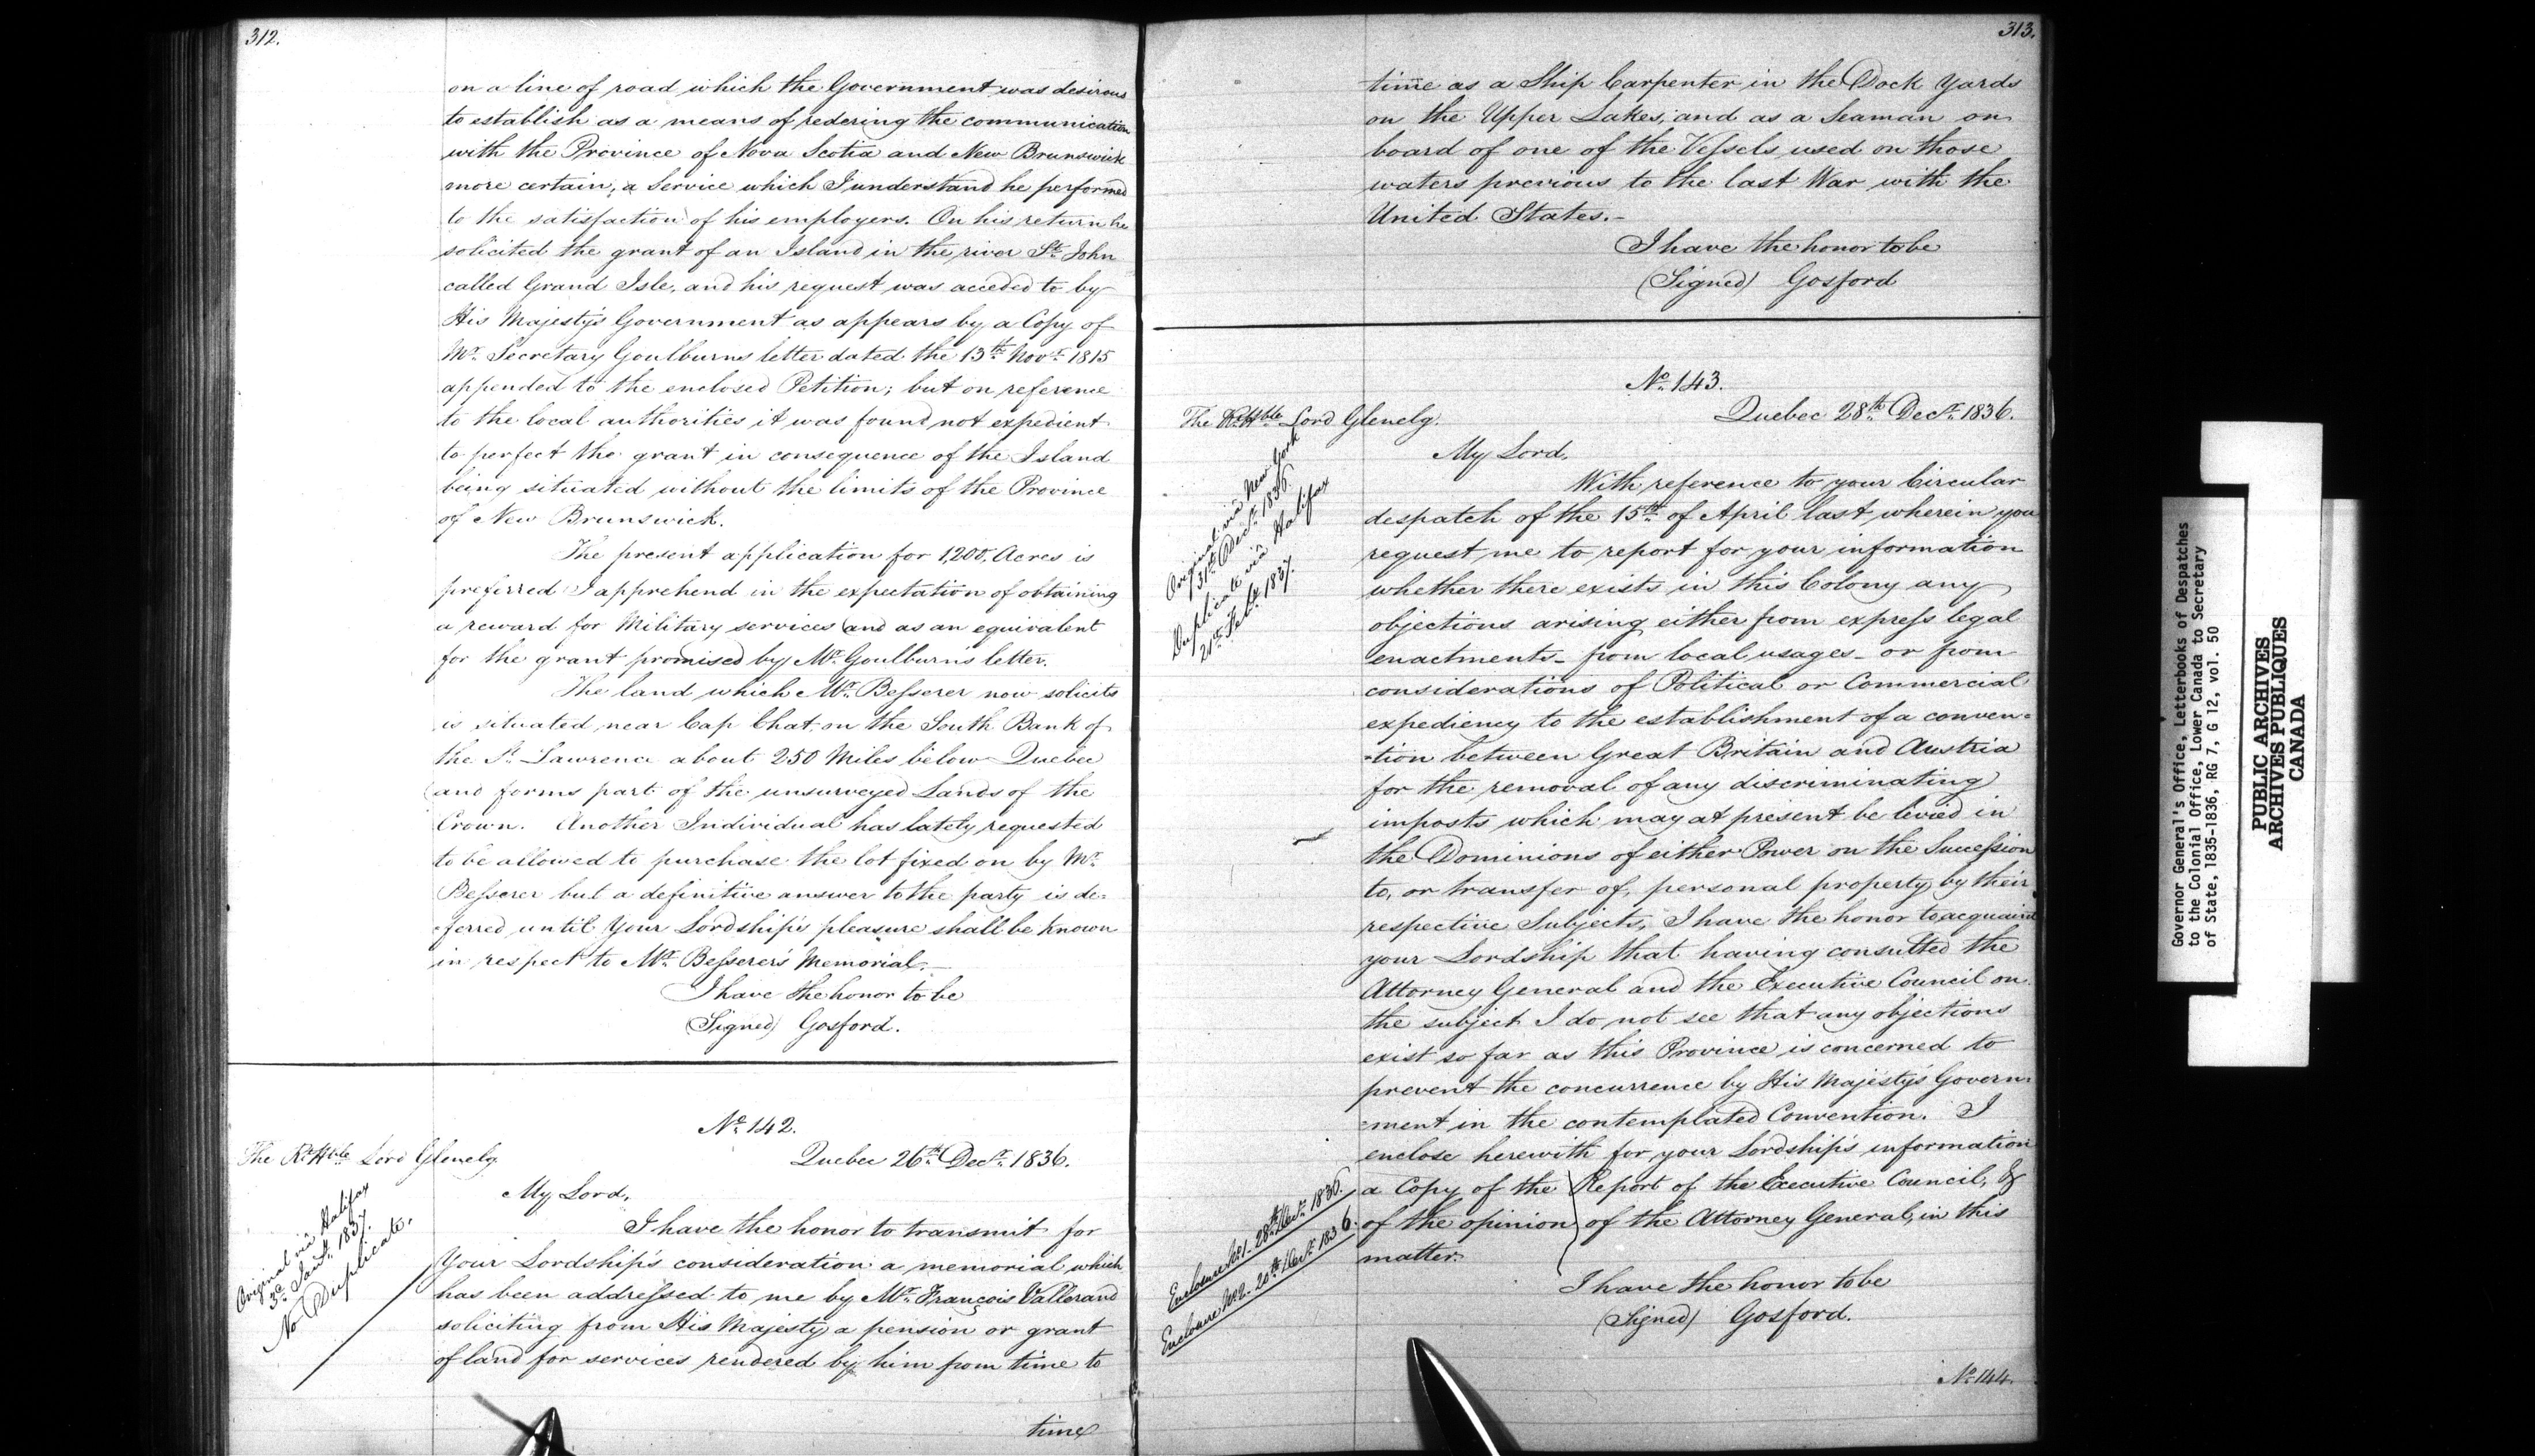 312.
on a line of road which the Government was desirous
to establish as a means of redering the communication
with the Province of Nova Scotia and New Brunswick
more certain, a Service which I understand he performed
to the satisfaction of his employers. On his return he
solicited the grant of an Island in the river St. John
called Grand Isle, and his request was acceded to by
His Majesty's Government as appears by a Copy of
Mr. Secretary Goulburns letter dated the 13th Novr. 1815
appended to the enclosed Petition; but on reference
to the local authorities it was found not expedient
to perfect the grant in consequence of the Island
being situated without the limits of the Province
of New Brunswick.
The present application for 1,200, Acres is
preferred I apprehend in the expectation of obtaining
a reward for Military services and as an equivalent
for the grant promised by Mr. Goulburn's letter.
The land which Mr. Besserer now solicits
is situated near Cap Chat, on the South Bank of
the St. Lawrence about 250 Miles below Quebec
and forms part of the unsurveyed Lands of the
Crown. Another Individual has lately requested
to be allowed to purchase the lot fixed on by Mr.
Besserer but a definitive answer to the party is de=
=ferred until Your Lordship's pleasure shall be known
in respect to Mr. Besserer's Memorial.
I have the honor to be
(Signed) Gosford.
No. 142.
The Rt. Hble Lord Glenelg
Quebec 26th Decr. 1836.
Original via Halifax
3d Jany. 1837.
No Duplicate.
My Lord,
I have the honor to transmit for
Your Lordship's consideration a memorial which
has been addressed to me by Mr. François Vallerand
soliciting from His Majesty a pension or grant
of land for services rendered by him from time to
time
313.
time as a Ship Carpenter in the Dock Yards
on the Upper Lakes, and as a Seaman on
board of one of the Vessels used on those
waters previous to the last War with the
United States.-
I have the honor to be
(Signed) Gosford
No. 143.
The Rt. Hble Lord Glenelg.
Quebec 28th Decr. 1836.
Original via New York
31st Decr. 1836.
Duplicate via Halifax
21st Feby. 1837.
My Lord,
With reference to your Circular
despatch of the 15th of April last wherein you
request me to report for your information
whether there exists in this Colony any
objections arising either from express legal
enactments - from local usages - or from
considerations of Political or Commercial
expediency to the establishment of a conven=
=tion between Great Britain and Austria
for the removal of any discriminating
imposts which may at present be levied in
the Dominions of either Power on the Succession
to, or transfer of, personal property by their
respective Subjects, I have the honor to acquaint
your Lordship that having consulted the
Attorney General and the Executive Council on
the subject I do not see that any objections
exist so far as this Province is concerned to
prevent the concurrence by His Majesty's Govern=
=ment in the contemplated Convention. I
enclose herewith for your Lordship's information
a Copy of the Report of the Executive Council, &
of the opinion of the Attorney General, in this
matter.
Enclosure No. 1 - 28th Decr. 1836.
Enclosure No. 2 - 20th Decr. 1836.
I have the honor to be
(Signed) Gosford.
No. 144.
Governor General's Office, Letterbooks of Despatches
to the Colonial Office, Lower Canada to Secretary
of State, 1835-1836, RG 7, G 12, vol. 50
PUBLIC ARCHIVES
ARCHIVES PUBLIQUES
CANADA